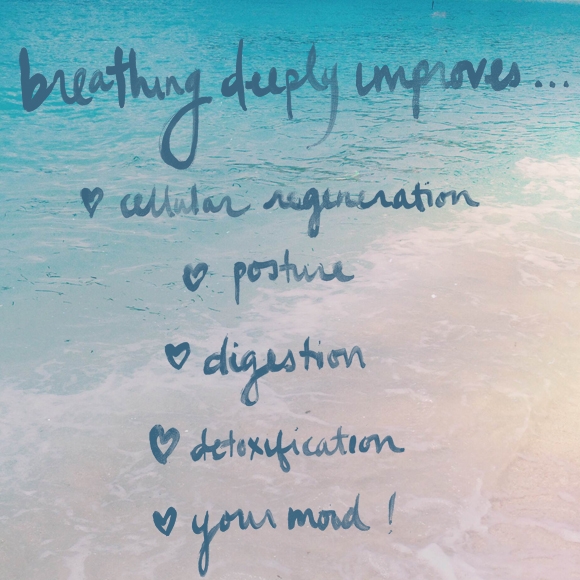 breathing deeply improves...
♥ cellular regeneration
♥ posture
♥ digestion
♥ detoxification
♥ your mood!